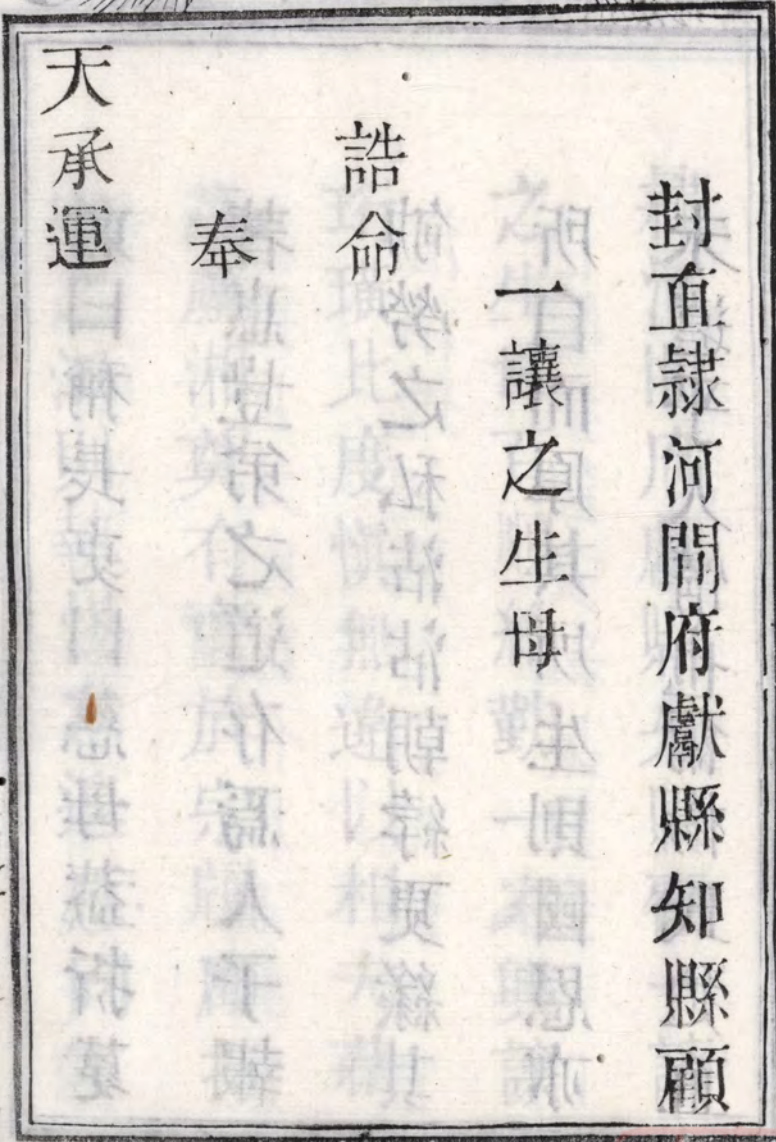 封直隸河間府獻縣知縣顧
一讓之生母
誥命
奉
天承運